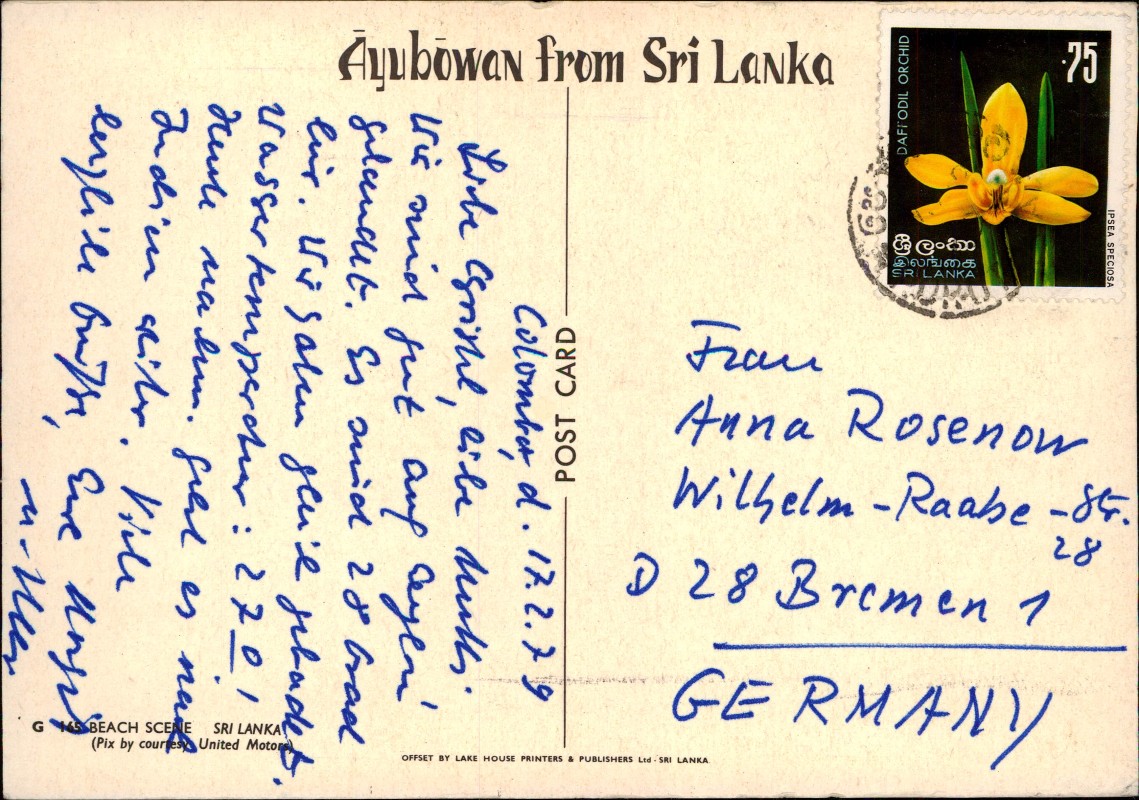 Āyubōwan from Sri Lanka
Colombo, d. 17.2.79
Liebe Christel, liebe Mutti
Wir sind gut auf Ceylon
gelandet. Es sind 28 Grad
hier. Wir haben gleich gebadet.
Wassertemperatur: 27°!
Heute nachm. geht es nach
Indien weiter. Viele
herzliche Grüße, Eure
POST CARD
DAFFODIL ORCHID
.75
IPSEA SPECIOSA
ශ්‍රී ලංකා
இலங்கை
SRI LANKA
Frau
Anna Rosenow
Wilhelm-Raabe-Str.
28
D 28 Bremen 1
GERMANY
G 165 BEACH SCENE SRI LANKA
(Pix by courtesy United Motors)
OFFSET BY LAKE HOUSE PRINTERS & PUBLISHERS Ltd - SRI LANKA.